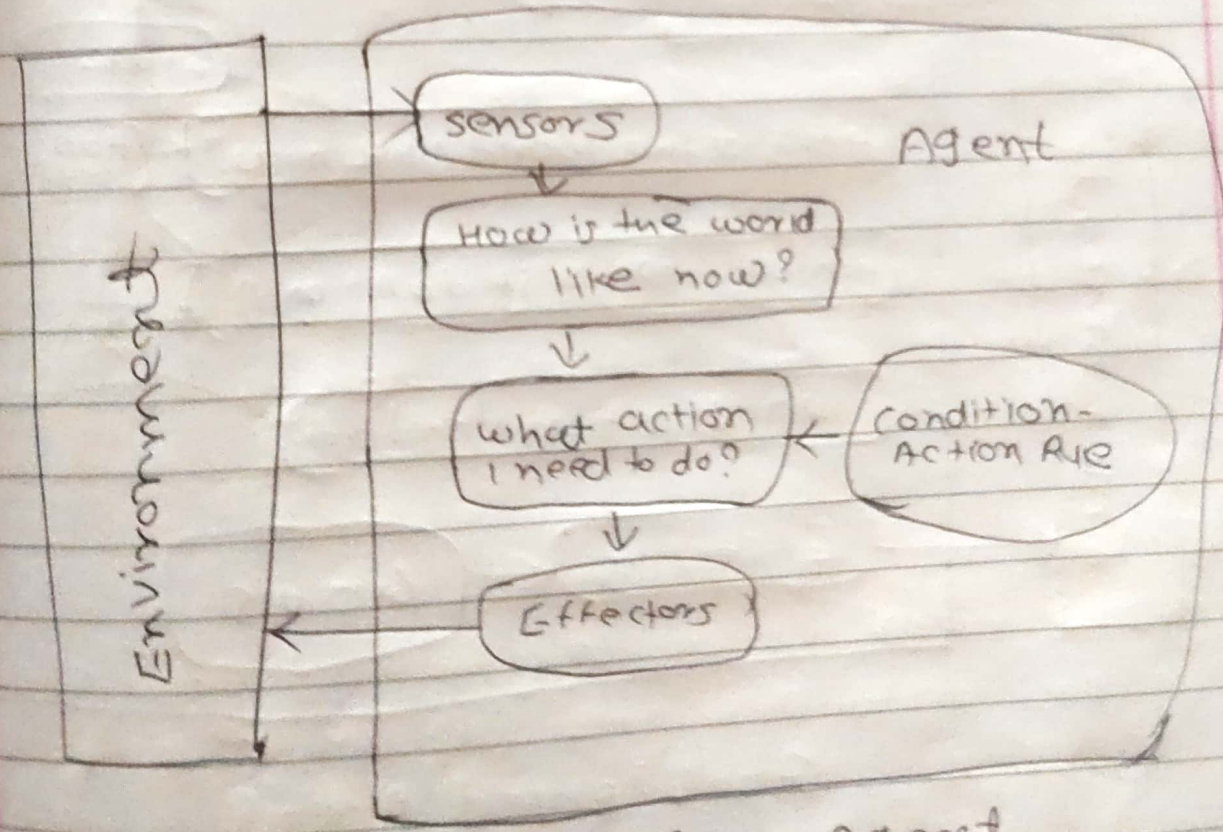 Environment
sensors
Agent
How is the world
like now?
what action
I need to do?
Condition-
Action Rule
Effectors